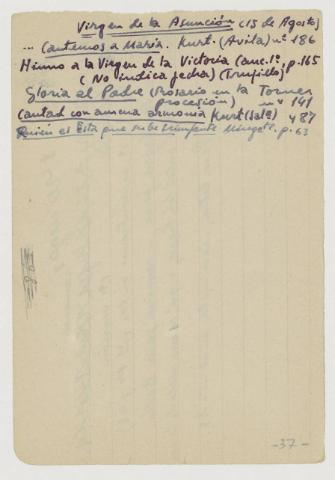 Virgen de la Asunción (15 de Agosto)
... Cantemos a María. Kurt. (Avila) nº 186
Himno a la Virgen de la Victoria (canc. 1º, p. 165
(No indica fecha) (Trujillo)
Gloria al Padre (Rosario en la Torner
procesión) nº 141
Cantad con amena armonía Kurt (Salª) 487
Quién es Esta que sube triunfante p. 63
-37-